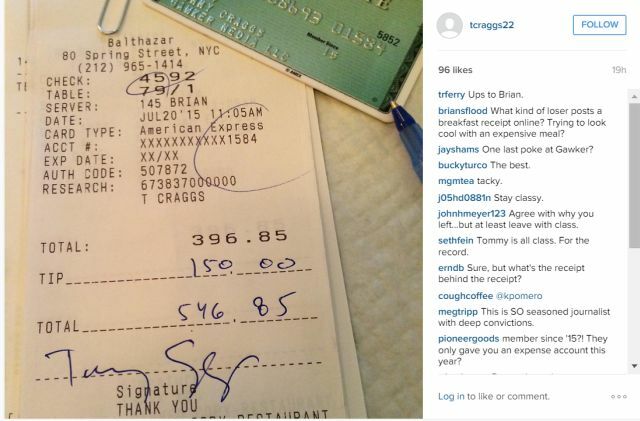 Balthazar
80 Spring Street, NYC
(212) 965-1414
CHECK: 4592
TABLE: 79/1
SERVER: 145 BRIAN
DATE: JUL20'15 11:05AM
CARD TYPE: American Express
ACCT #: XXXXXXXXXXX1584
EXP DATE: XX/XX
AUTH CODE: 507872
RESEARCH: 673837000000
T CRAGGS
TOTAL: 396.85
TIP 150.00
TOTAL 546.85
Signature
THANK YOU
RESTAURANT
CRAGGS
MEDIA LLC
Member Since
15
5852
AMEX
tcraggs22
FOLLOW
96 likes
19h
trferry Ups to Brian.
briansflood What kind of loser posts a
breakfast receipt online? Trying to look
cool with an expensive meal?
jayshams One last poke at Gawker?
buckyturco The best.
mgmtea tacky.
j05hd0881n Stay classy.
johnhmeyer123 Agree with why you
left...but at least leave with class.
sethfein Tommy is all class. For the
record.
erndb Sure, but what's the receipt
behind the receipt?
coughcoffee @kpomero
megtripp This is SO seasoned journalist
with deep convictions.
pioneergoods member since '15?! They
only gave you an expense account this
year?
Log in to like or comment.